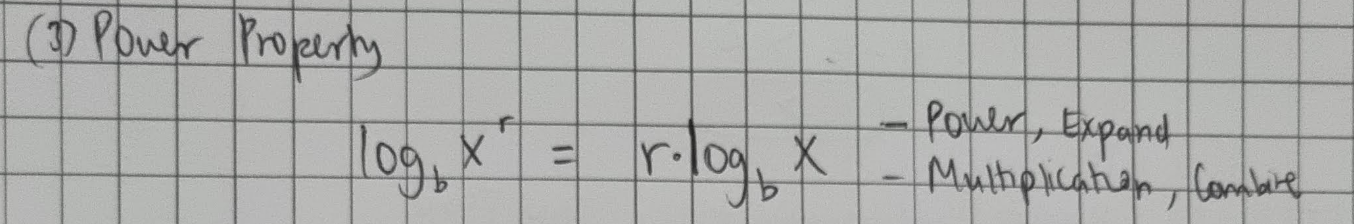 (3) Power Property
log_b x^r = r·log_b x
- Power, Expand
- Multiplication, Combine